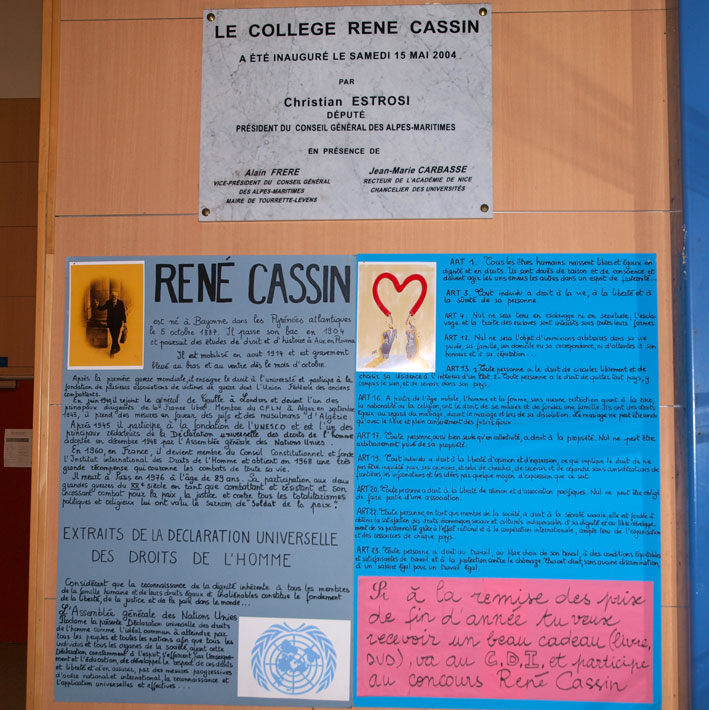 LE COLLEGE RENE CASSIN
A ÉTÉ INAUGURÉ LE SAMEDI 15 MAI 2004
PAR
Christian ESTROSI
DÉPUTÉ
PRÉSIDENT DU CONSEIL GÉNÉRAL DES ALPES-MARITIMES
EN PRÉSENCE DE
Alain FRERE
VICE-PRÉSIDENT DU CONSEIL GÉNÉRAL
DES ALPES-MARITIMES
MAIRE DE TOURRETTE-LEVENS
Jean-Marie CARBASSE
RECTEUR DE L'ACADÉMIE DE NICE
CHANCELIER DES UNIVERSITÉS
RENÉ CASSIN
est né à Bayonne dans les Pyrénées atlantiques
le 5 octobre 1887. Il passe son bac en 1904
et poursuit des études de droit et d'histoire à Aix en
Il est mobilisé en aout 1914 et est gravement
blessé au bras et au ventre dès le mois d'octobre.
Après la première guerre mondiale, il enseigne le droit à l'université et participe à la
fondation de plusieurs associations de victimes de guerre dont l'Union Fédérale des anciens
combattants.
En juin 1940 il rejoint le général de Gaulle à Londres et devient l'un des
principaux dirigeants de la France libre. Membre du CFLN à Alger en septembre
1943, il prend des mesures en faveur des juifs et des musulmans d'Algérie.
Après 1945 il participe à la fondation de l'UNESCO et est l'un des
principaux rédacteurs de la Déclaration universelle des droits de l'homme
adoptée en décembre 1948 par l'Assemblée générale des Nations Unies.
En 1960, en France, il devient membre du Conseil Constitutionnel et fonde
l'Institut international des Droits de l'Homme et obtient en 1968 une très
grande récompense qui couronne les combats de toute sa vie.
Il meurt à Paris en 1976 à l'âge de 89 ans. Sa participation aux deux
grandes guerres du XXe siècle en tant que combattant et résistant et son
incessant combat pour la paix, la justice et contre tous les totalitarismes
politiques et religieux lui ont valu le surnom de Soldat de la paix.
EXTRAITS DE LA DÉCLARATION UNIVERSELLE
DES DROITS DE L'HOMME
Considérant que la reconnaissance de la dignité inhérente à tous les membres
de la famille humaine et de leurs droits égaux et inaliénables constitue le fondement
de la liberté, de la justice, et de la paix dans le monde...
L'Assemblée Générale des Nations Unies
Proclame la présente Déclaration universelle des droits
de l'homme comme l'idéal commun à atteindre par
tous les peuples et toutes les nations afin que tous les
individus et tous les organes de la société, ayant cette
Déclaration constamment à l'esprit, s'efforcent, par l'enseignement
et l'éducation, de développer le respect de ces droits
et libertés et d'en assurer, par des mesures progressives
d'ordre national et international, la reconnaissance et
l'application universelles et effectives...
ART 1. Tous les êtres humains naissent libres et égaux en
dignité et en droits. Ils sont doués de raison et de conscience et
doivent agir les uns envers les autres dans un esprit de fraternité...
ART 3. Tout individu a droit à la vie, à la liberté et à
la sûreté de sa personne.
ART 4. Nul ne sera tenu en esclavage ni en servitude, l'esclavage
et la traite des esclaves sont interdits sous toutes leurs formes.
ART 12. Nul ne sera l'objet d'immixtions arbitraires dans sa vie
privée, sa famille, son domicile ou sa correspondance, ni d'atteintes à son
honneur et à sa réputation...
ART 13. 1 Toute personne a le droit de circuler librement et de
choisir sa résidence à l'intérieur d'un Etat. 2 Toute personne a le droit de quitter tout pays, y
compris le sien, et de revenir dans son pays.
ART 16. A partir de l'âge nubile, l'homme et la femme, sans aucune restriction quant à la race,
la nationalité ou la religion, ont le droit de se marier et de fonder une famille. Ils ont des droits
égaux au regard du mariage, durant le mariage et lors de sa dissolution. Le mariage ne peut être conclu
qu'avec le libre et plein consentement des futurs époux.
ART 17. Toute personne, aussi bien seule qu'en collectivité, a droit à la propriété. Nul ne peut être
arbitrairement privé de sa propriété.
ART 19. Tout individu a droit à la liberté d'opinion et d'expression, ce qui implique le droit de ne
pas être inquiété pour ses opinions, et celui de chercher, de recevoir et de répandre sans considérations de
frontières, les informations et les idées par quelque moyen d'expression que ce soit.
ART 20. Toute personne a droit à la liberté de réunion et d'association pacifiques. Nul ne peut être obligé
de faire partie d'une association.
ART 22. Toute personne, en tant que membre de la société, a droit à la sécurité sociale, elle est fondée à
obtenir la satisfaction des droits économiques, sociaux et culturels indispensables à sa dignité et au libre développement
de sa personnalité, grâce à l'effort national et à la coopération internationale, compte tenu de l'organisation
et des ressources de chaque pays.
ART 23. Toute personne a droit au travail, au libre choix de son travail, à des conditions équitables
et satisfaisantes de travail et à la protection contre le chômage. Tous ont droit, sans aucune discrimination,
à un salaire égal pour un travail égal.
Si à la remise des prix
de fin d'année tu veux
recevoir un beau cadeau (livre,
DVD), va au C.D.I, et participe
au concours René Cassin